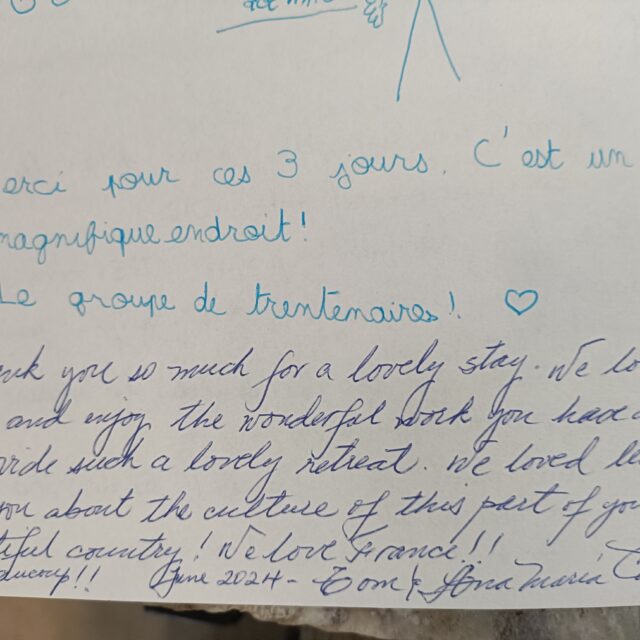 erci pour ces 3 jours. C'est un
magnifique endroit!
Le groupe de trentenaires! ♡
nk you so much for a lovely stay. We lo
and enjoy the wonderful work you have
vide such a lovely retreat. We loved le
you about the culture of this part of you
tiful country! We love France!!
ucoup!! June 2024 - Tom & Ana Maria C